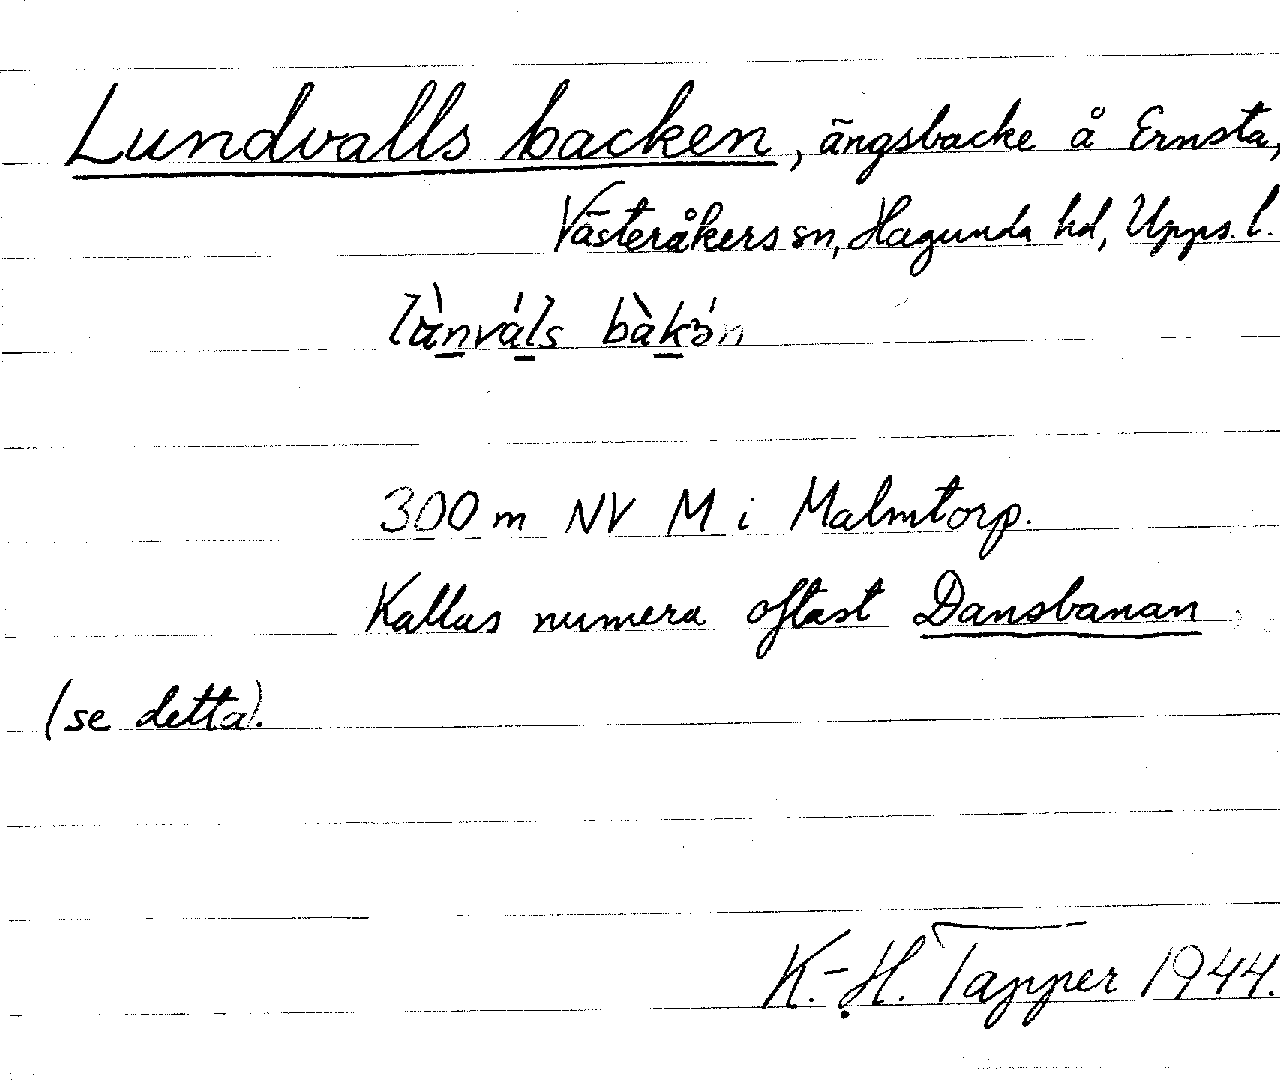 Lundvalls backen, ängsbacke å Ernsta,
Västeråkers sn, Hagunda hd, Upps. l.
300 m NV M i Malmtorp.
Kallas numera oftast Dansbanan
(se detta).
K.-H. Tapper 1944.